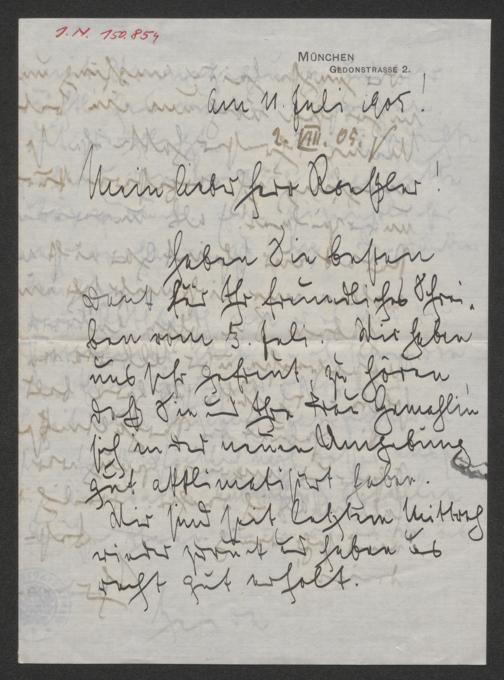 J.N. 150.854
MÜNCHEN
GEDONSTRASSE 2.
am 11. Juli 1905!
2. VIII. 05.
Mein lieber Herr Roessler!
Haben Sie besten
Dank für Ihr freundliches Schrei-
ben vom 5. Juli. Wir haben
uns sehr gefreut, zu hören,
daß Sie und Ihre Frau Gemahlin
sich in der neuen Umgebung
gut akklimatisirt haben.
Wir sind seit letztem Mittwoch
wieder zurück und haben uns
recht gut erholt.